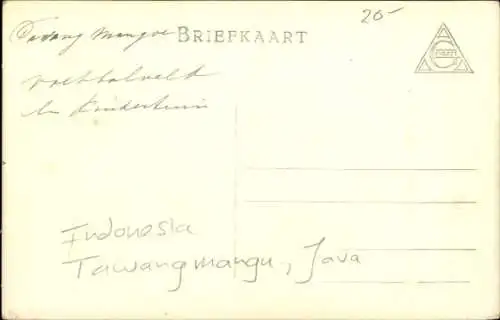 20-
Tawang Mangoe BRIEFKAART
voetbalveld
en Kindertuin
Indonesia
Tawangmangu, Java